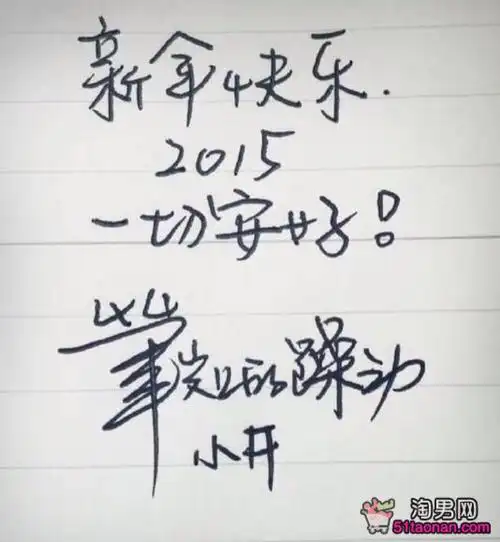 新年快乐.
2015
一切安好!
的躁动
小开
淘男网
51taonan.com